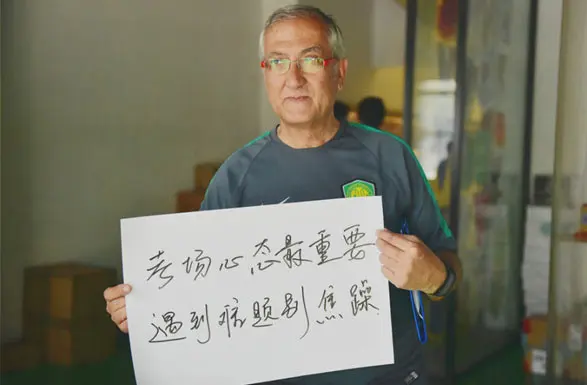 考场心态最重要
遇到难题别焦躁